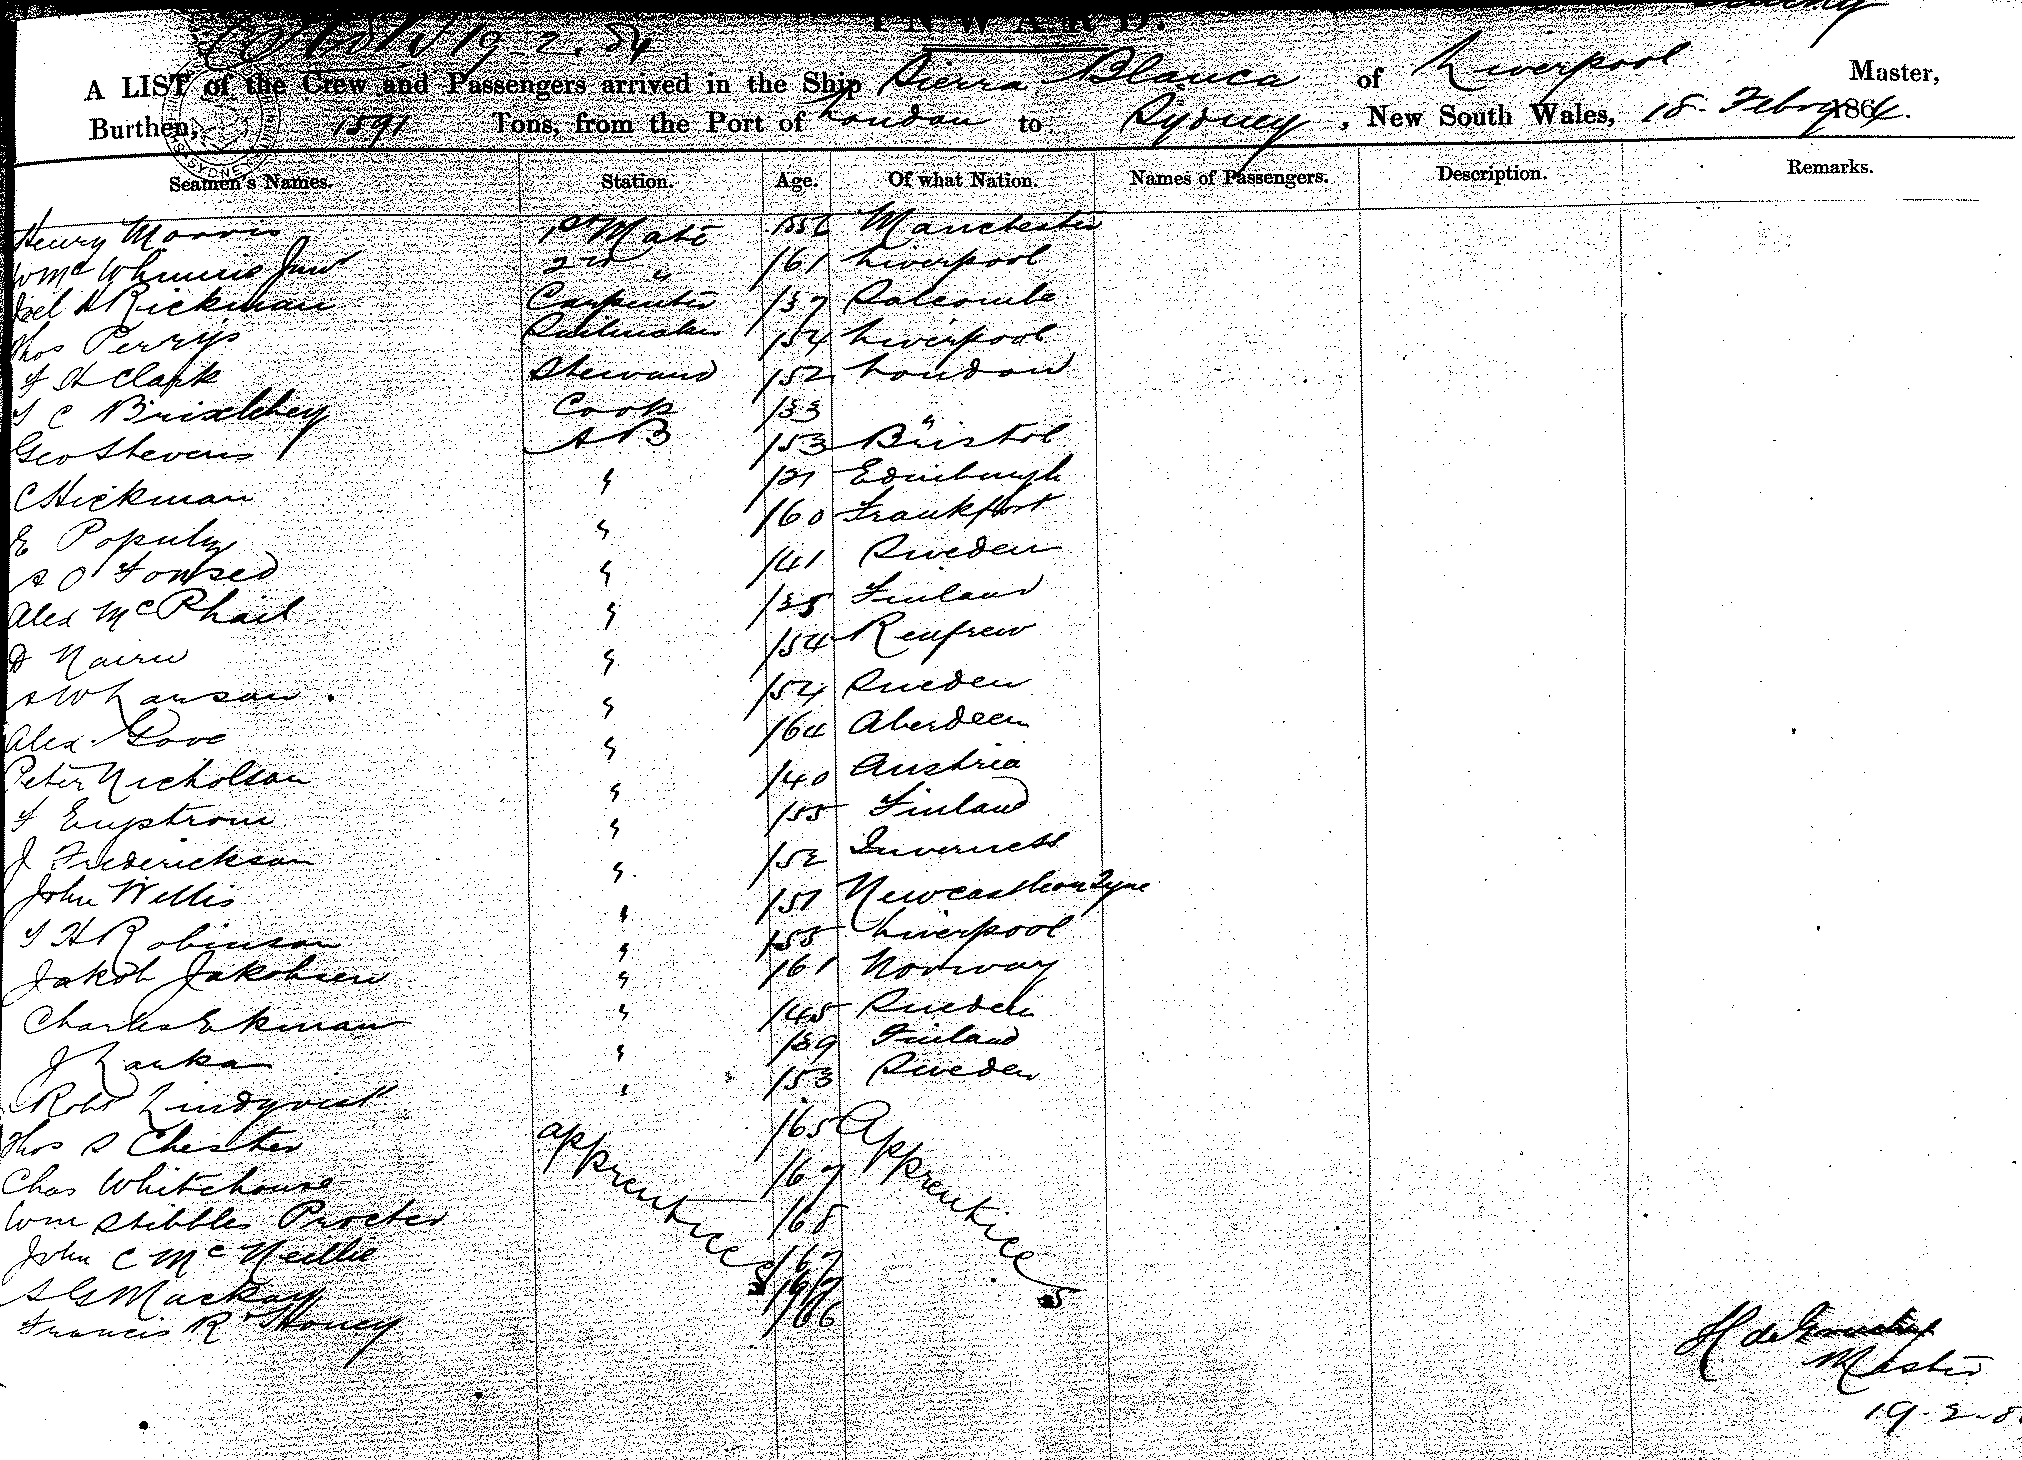 INWARD.
19.2.84
A LIST of the Crew and Passengers arrived in the Ship Sierra Blanca of Liverpool Master,
Burthen, 1591 Tons, from the Port of London to Sydney, New South Wales, 18 Febry 1864.
Seamen's Names. Station. Age. Of what Nation. Names of Passengers. Description. Remarks.
Henry Morris 1st Mate Manchester
2nd " /61 Liverpool
Rickman Carpenter /37 Salcombe
Thos Perrys Sailmaker /54 Liverpool
F H Clark Steward /52 London
Cook /33 "
Geo Stevens A B /53 Bristol
C Hickman " /21 Edinburgh
E " /60 Frankfort
" /41 Sweden
Alex McPhail " /35 Finland
D Nairn " /54 Renfrew
A W Larson " /54 Sweden
Alex. Gove " /64 Aberdeen
Peter Nicholson " /40 Austria
F Engstrom " /55 Finland
J Frederickson " /52 Inverness
John Willis " /57 Newcastle on Tyne
T H Robinson " /55 Liverpool
Jakob Jakobsen " /61 Norway
Charles Ekman " /45 Sweden
J Lanka " /39 Finland
Robt Lindqvist " /53 Sweden
Thos S Chester apprentices /65 Apprentices
Chas Whitehouse /67
Wm Stibbles Procter /68
John C McNeillie /67
S G Mackay /67
Francis R Honey /66
H de Gruchy
Master
19-2-8